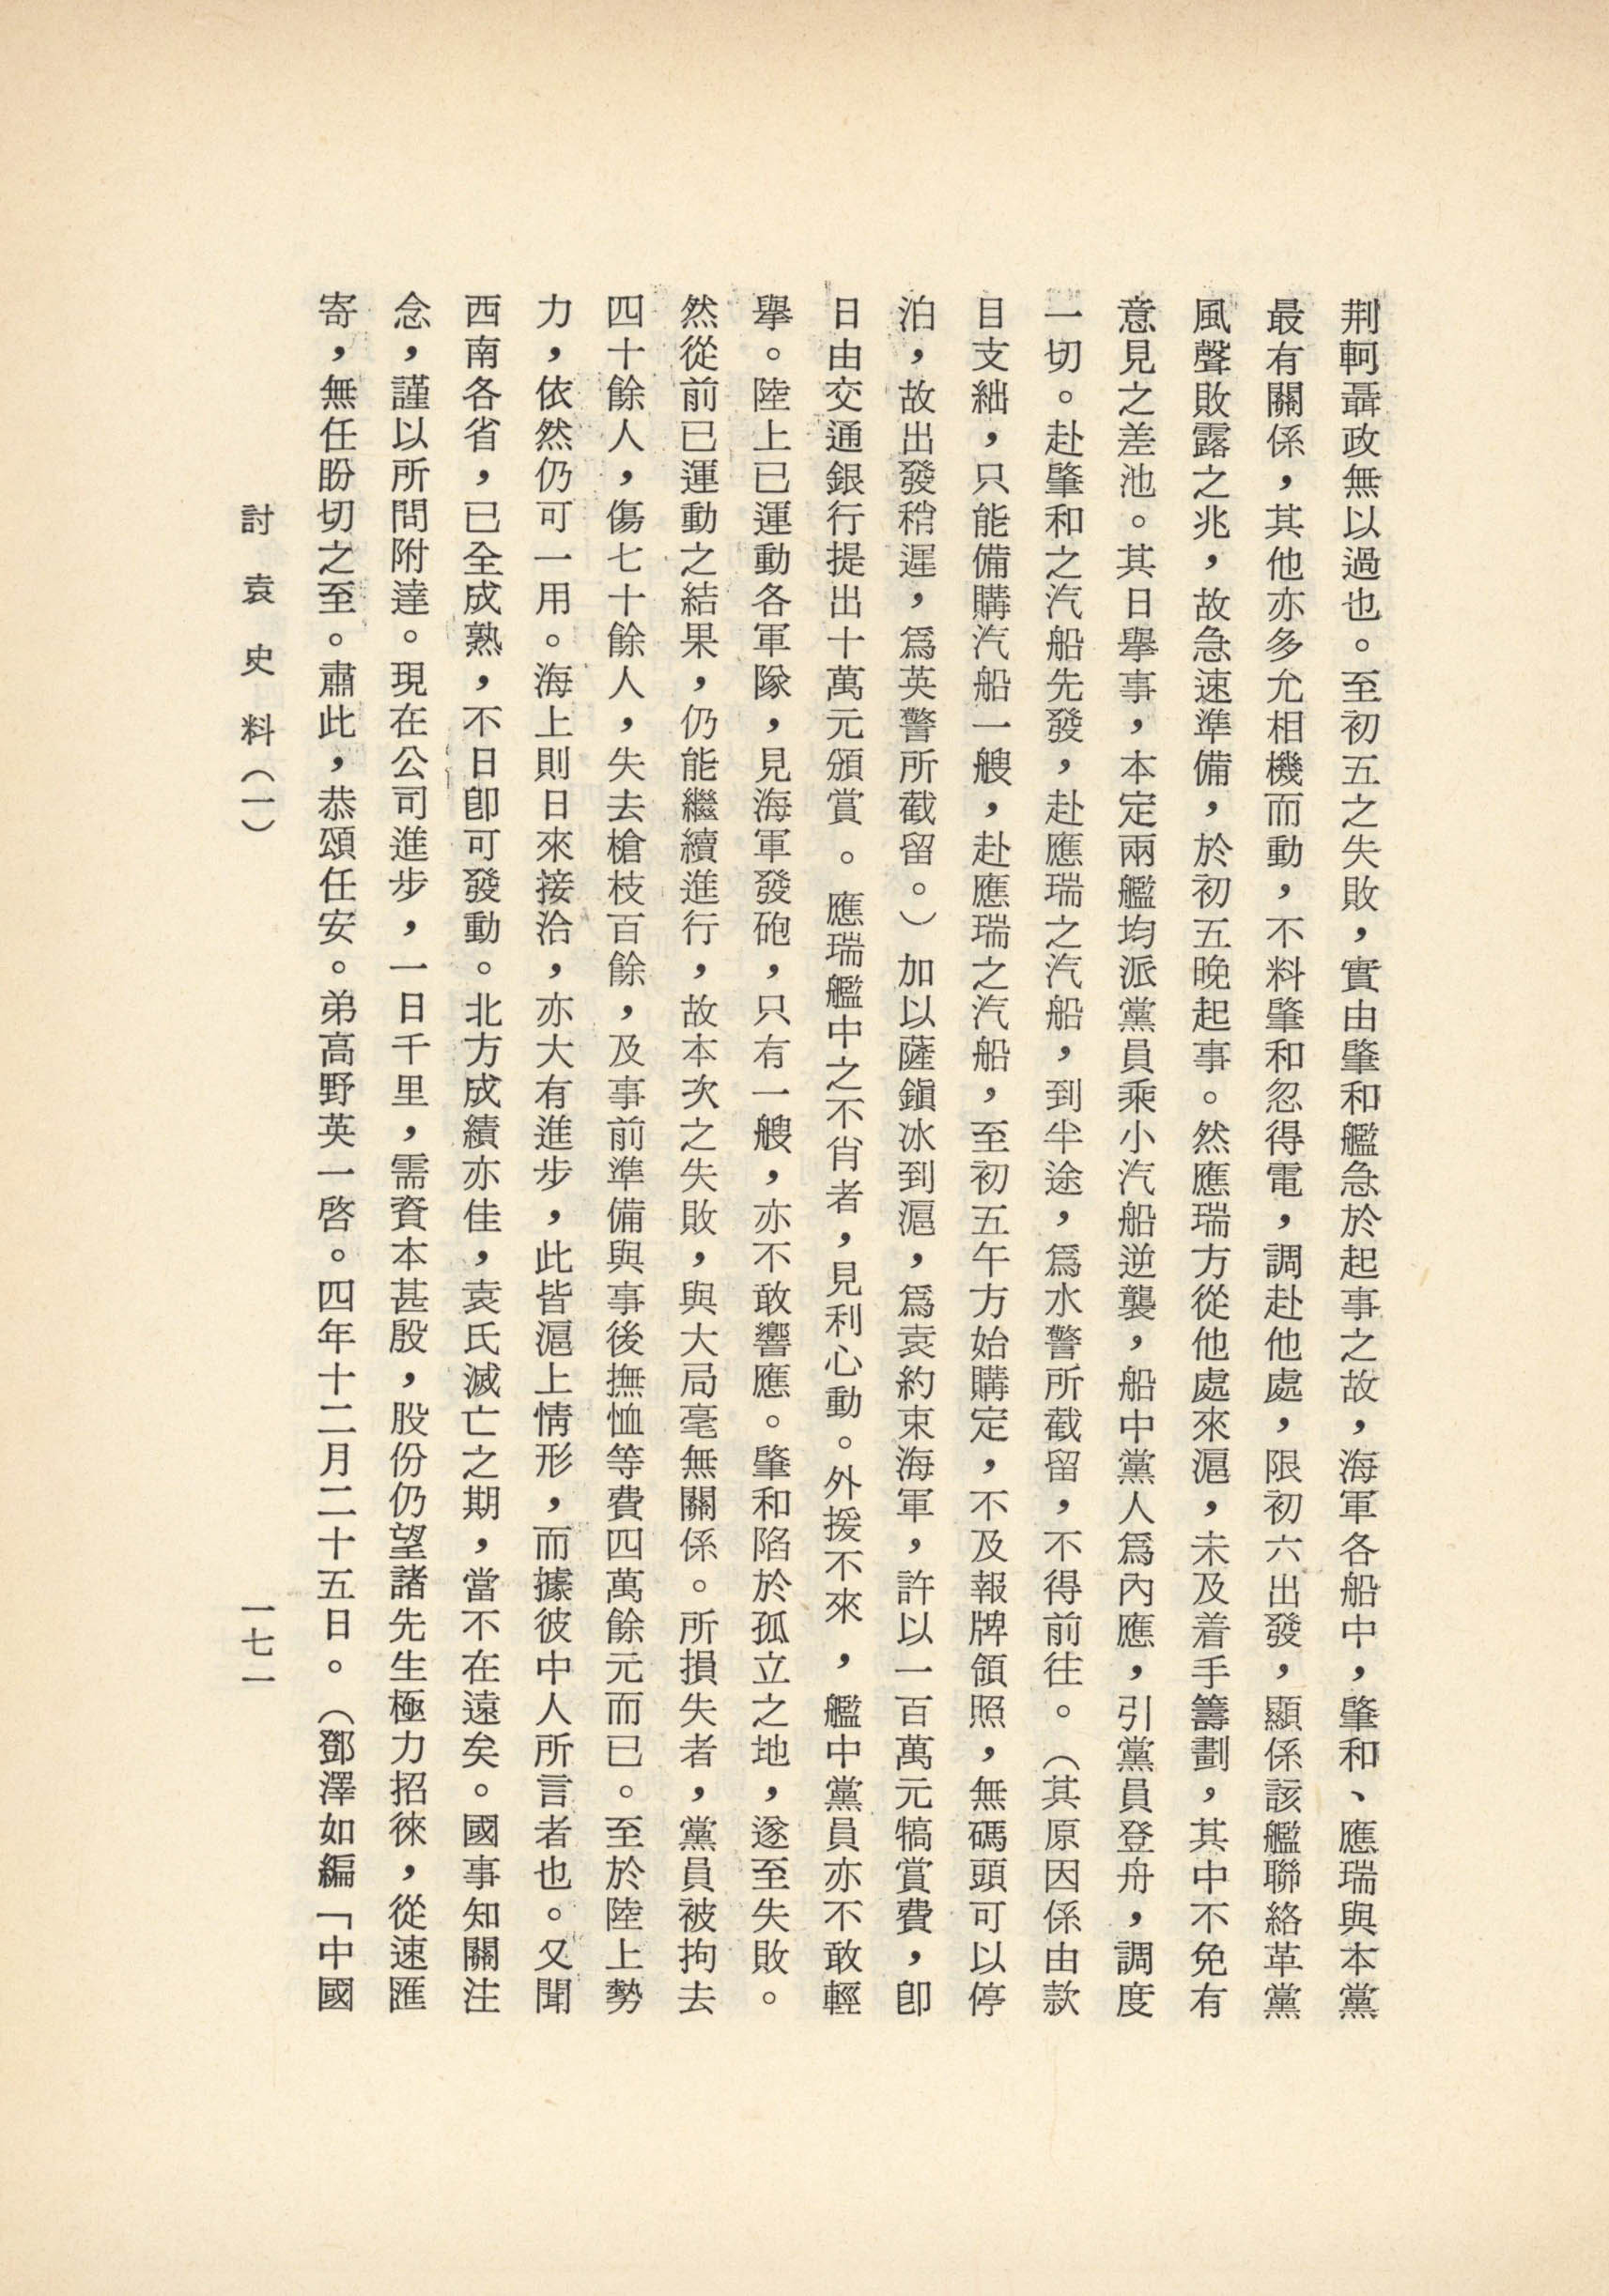 荆軻聶政無以過也。至初五之失敗，實由肇和艦急於起事之故，海軍各船中，肇和、應瑞與本黨
最有關係，其他亦多允相機而動，不料肇和忽得電，調赴他處，限初六出發，顯係該艦聯絡革黨
風聲敗露之兆，故急速準備，於初五晚起事。然應瑞方從他處來滬，未及着手籌劃，其中不免有
意見之差池。其日舉事，本定兩艦均派黨員乘小汽船逆襲，船中黨人爲內應，引黨員登舟，調度
一切。赴肇和之汽船先發，赴應瑞之汽船，到半途，爲水警所截留，不得前往。（其原因係由款
目支絀，只能備購汽船一艘，赴應瑞之汽船，至初五午方始購定，不及報牌領照，無碼頭可以停
泊，故出發稍遲，爲英警所截留。）加以薩鎭冰到滬，爲袁約束海軍，許以一百萬元犒賞費，卽
日由交通銀行提出十萬元頒賞。應瑞艦中之不肖者，見利心動。外援不來，艦中黨員亦不敢輕
舉。陸上已運動各軍隊，見海軍發砲，只有一艘，亦不敢響應。肇和陷於孤立之地，遂至失敗。
然從前已運動之結果，仍能繼續進行，故本次之失敗，與大局毫無關係。所損失者，黨員被拘去
四十餘人，傷七十餘人，失去槍枝百餘，及事前準備與事後撫恤等費四萬餘元而已。至於陸上勢
力，依然仍可一用。海上則日來接洽，亦大有進步，此皆滬上情形，而據彼中人所言者也。又聞
西南各省，已全成熟，不日卽可發動。北方成績亦佳，袁氏滅亡之期，當不在遠矣。國事知關注
念，謹以所問附達。現在公司進步，一日千里，需資本甚殷，股份仍望諸先生極力招徠，從速匯
寄，無任盼切之至。肅此，恭頌任安。弟高野英一啓。四年十二月二十五日。（鄧澤如編「中國
討袁史料（一）
一七一